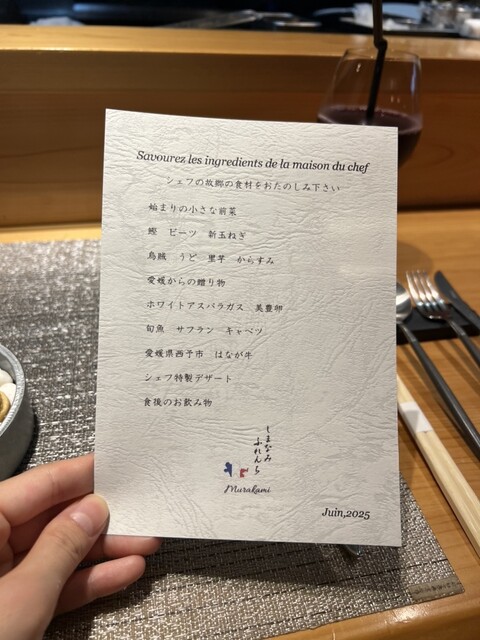 Savourez les ingredients de la maison du chef
シェフの故郷の食材をおたのしみ下さい
始まりの小さな前菜
鰹　ビーツ　新玉ねぎ
烏賊　うど　里芋　からすみ
愛媛からの贈り物
ホワイトアスパラガス　美豊卵
旬魚　サフラン　キャベツ
愛媛県西予市　はなが牛
シェフ特製デザート
食後のお飲み物
しまなみ
ふれんち
Murakami
Juin,2025